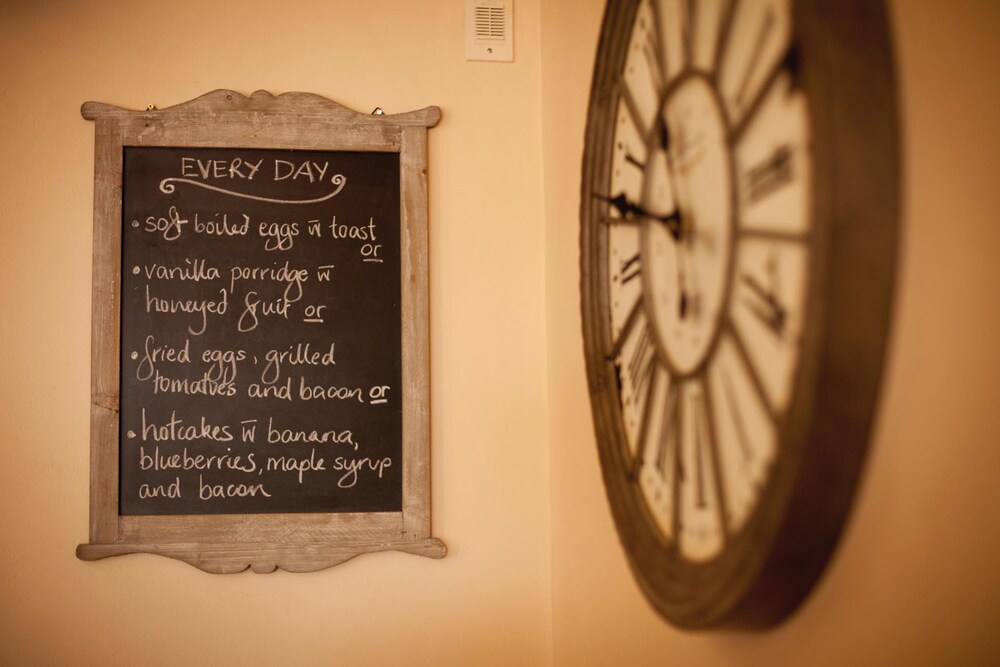 EVERY DAY
• soft boiled eggs w̅ toast
or
• vanilla porridge w̅
honeyed fruit or
• fried eggs, grilled
tomatoes and bacon or
• hotcakes w̅ banana,
blueberries, maple syrup
and bacon